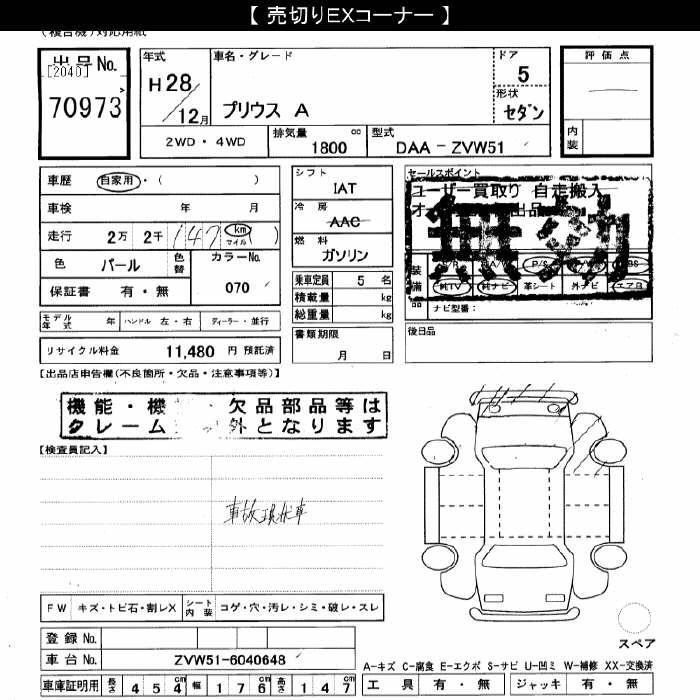 【 売切りEXコーナー 】
(複合機)対応用紙
出品No.
[204D]
70973
年式
H28
12月
車名・グレード
プリウス A
ドア
5
形状
セダン
評価点
内装
2WD・4WD
排気量
1800 cc
型式
DAA-ZVW51
車歴 自家用・( )
車検 年 月
走行 2万 2千 147 km マイル )
色 パール
色替
カラーNo.
070
保証書 有・無
シフト
IAT
冷房
AAC
燃料
ガソリン
乗車定員 5 名
積載量 kg
総重量 kg
書類期限
月 日
セールスポイント
ユーザー買取り 自走搬入
装備品
P/S
純TV 純ナビ 革シート 外ナビ エアB
ナビ型番:
後日品
モデル年式 年 ハンドル 左・右 ディーラー・並行
リサイクル料金 11,480 円 預託済
【出品店申告欄(不良箇所・欠品・注意事項等)】
機能・機 ・欠品部品等は
クレーム 外となります
【検査員記入】
事故現状車
FW キズ・トビ石・割レX
シート内装 コゲ・穴・汚レ・シミ・破レ・スレ
登録No.
車台No. ZVW51-6040648
スペア
A-キズ C-腐食 E-エクボ S-サビ U-凹ミ W-補修 XX-交換済
車庫証明用 長さ 4 5 4cm 幅 1 7 6cm 高さ 1 4 7cm
工具 有・無 ジャッキ 有・無